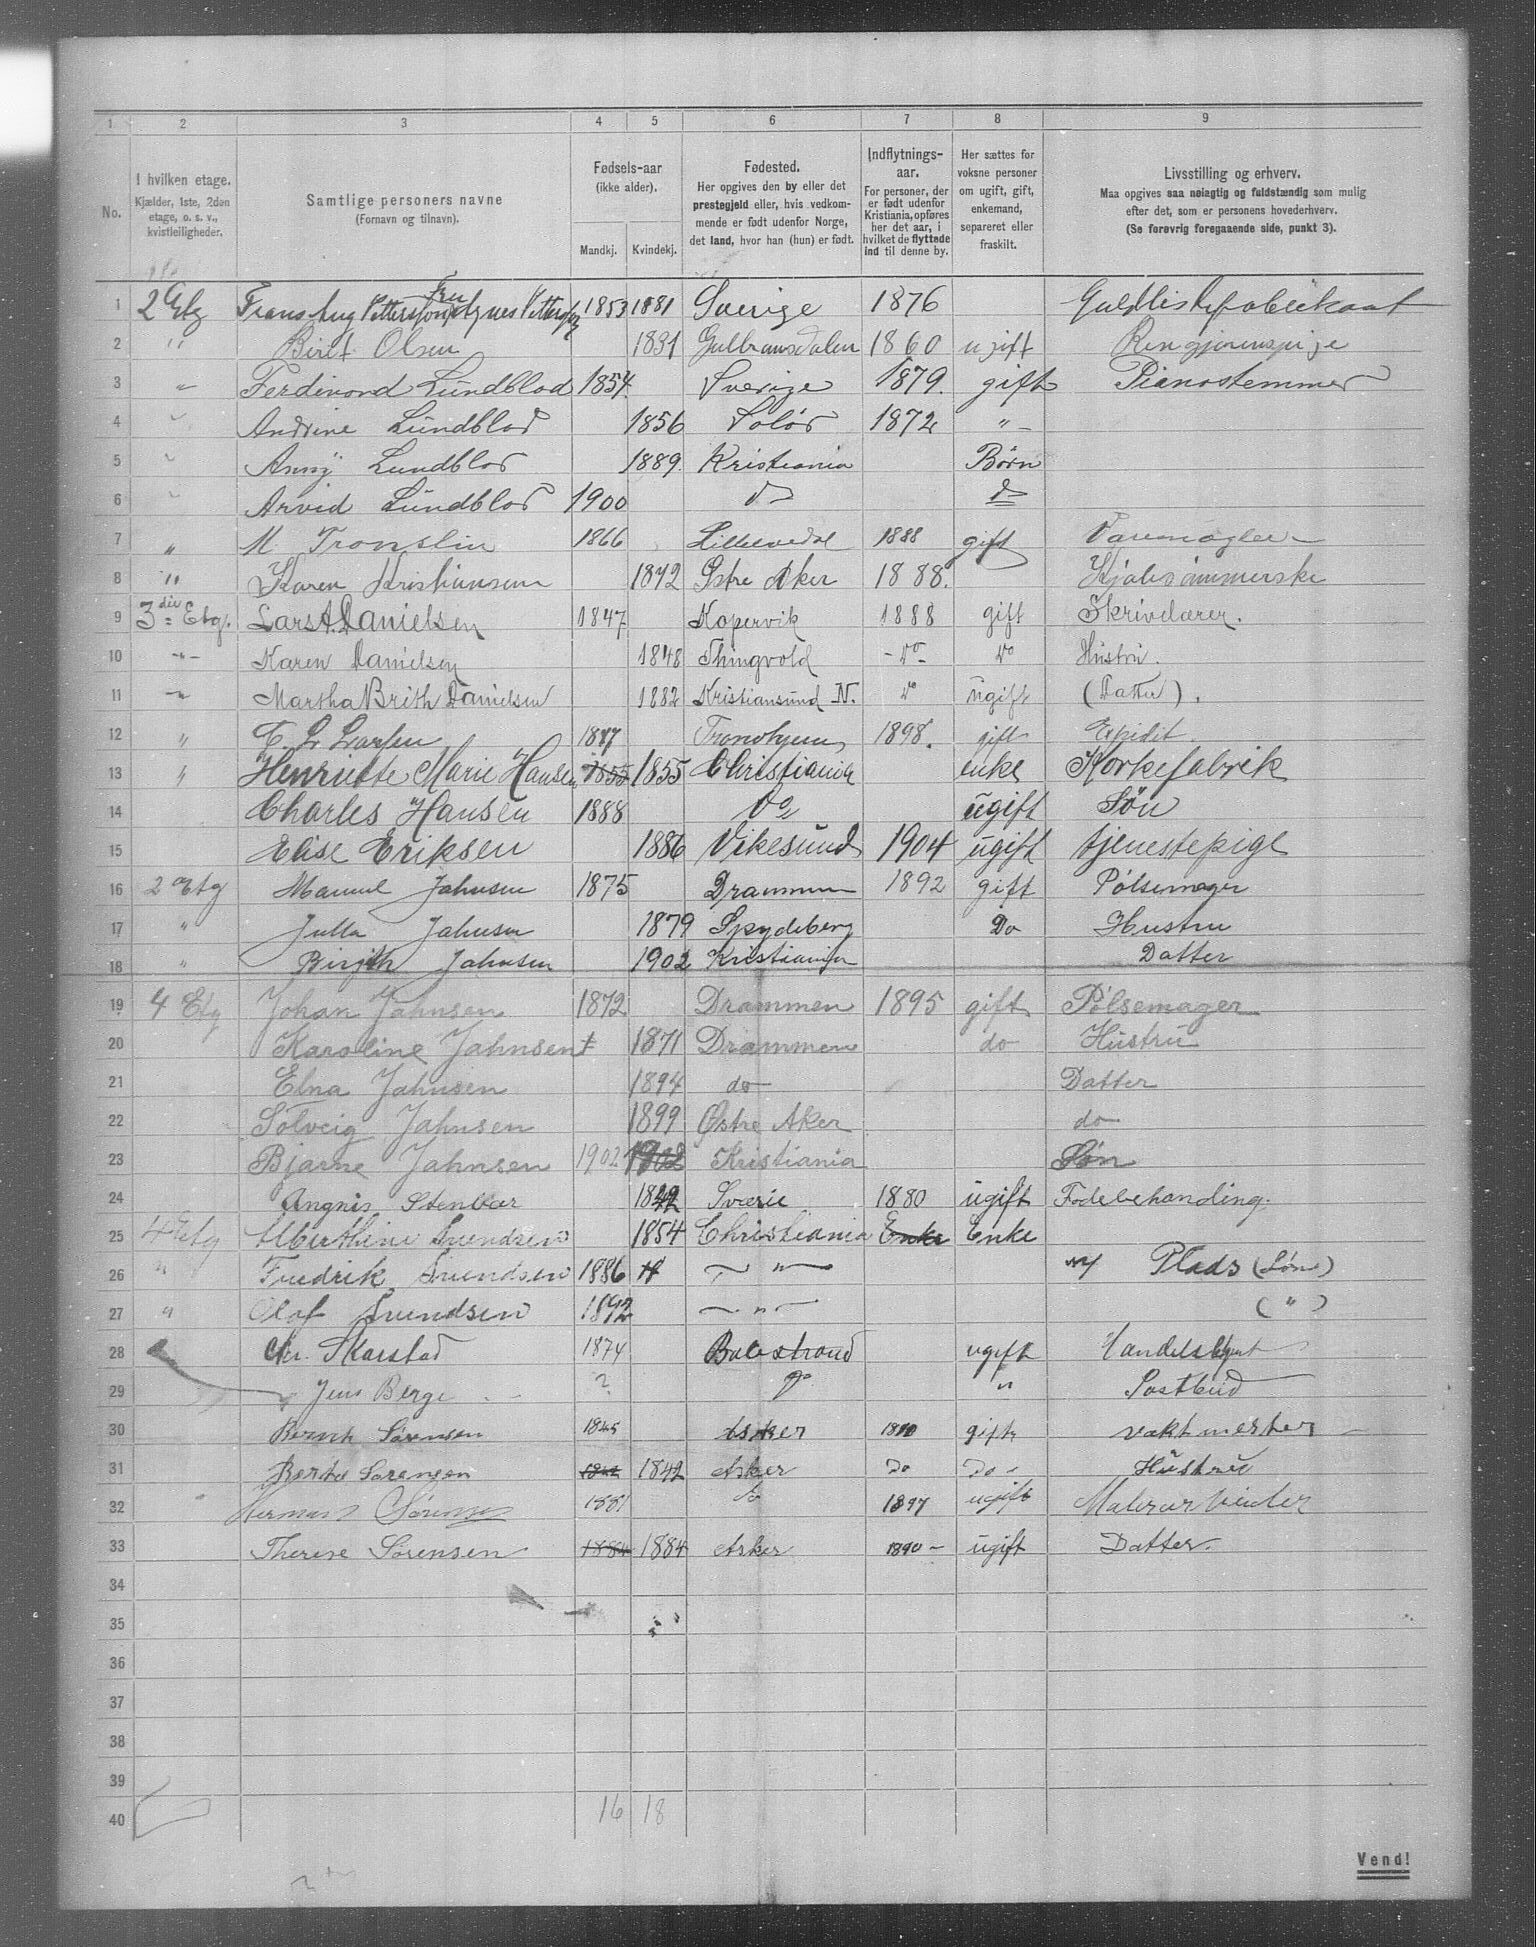 1 2 3 4 5 6 7 8 9
No.
I hvilken etage.
Kjælder, 1ste, 2den
etage, o. s. v.,
kvistleiligheder.
Samtlige personers navne
(Fornavn og tilnavn).
Fødsels-aar
(ikke alder).
Mandkj. Kvindekj.
Fødested.
Her opgives den by eller det
prestegjeld eller, hvis vedkom-
mende er født udenfor Norge,
det land, hvor han (hun) er født.
Indflytnings-
aar.
For personer, der
er født udenfor
Kristiania, opføres
her det aar, i
hvilket de flyttede
ind til denne by.
Her sættes for
voksne personer
om ugift, gift,
enkemand,
separeret eller
fraskilt.
Livsstilling og erhverv.
Maa opgives saa nøiagtig og fuldstændig som mulig
efter det, som er personens hovederhverv.
(Se forøvrig foregaaende side, punkt 3).
1 2 Etg Frans Aug Pettersson, Fru Agnes Pettersson 1853 1881 Sverige 1876 Guldlistefabrikant
2 " Biret Olsen 1831 Gulbransdalen 1860 ugift Rengjørenspige
3 " Ferdinond Lundblad 1854. Sverige 1879. gift Pianostemmer
4 " Andrine Lundblad 1856 Solör 1872 " -
5 " Anny Lundblad 1889. Kristiania Børn
6 " Arvid Lundblad 1900 do do
7 " M Tronslin 1866 1888 gift
8 " Karen Kristiansen 1872 Østre Aker 1888. Kjolesömmerske
9 3die Etg. Lars A. Danielsen 1847 Kopervik 1888 gift Skrivelærer.
10 -"- Karen Danielsen 1848 Thingvold - do - do Hustru.
11 -"- Martha Brith Danielsen 1882 Kristiansund N. do ugift (Datter).
12 " C L Larsen 1847 Tronhjem 1898. gift Expedit.
13 " Henriette Marie Hansen 1855 1855 Christiania enke Korkefabrik
14 Charles Hansen 1888 Do ugift Søn
15 Elise Eriksen 1886 Vikesund 1904 ugift tjenestepige
16 2 Etg Manuel Jahnsen 1875 Drammen 1892 gift Pølsemager
17 " Julla Jahnsen 1879 Spydeberg Do Hustru
18 " Birgith Jahnsen 1902 Kristiania Datter
19 4 Etg Johan Jahnsen 1872 Drammen 1895 gift Pølsemager
20 Karoline Jahnsen 1871 Drammen do Hustru
21 Elna Jahnsen 1894 do Datter
22 Solveig Jahnsen 1899 Østre Aker do
23 Bjarne Jahnsen 1902 1902 Kristiania Søn
24 Angnis Stenbær 1842 Sværie 1880 ugift Fodebehandling.
25 4 Etg Alberthine Svendsen 1854 Christiania Enke Enke
26 " Fredrik Svendsen 1886 - " - Plads (Søn)
27 " Olaf Svendsen 1892 - " - ( " )
28 Chr. Skarstad 1874 Balestrand ugift Handelsbjent
29 Jens Berge ? ? " Postbud
30 Bernh Sørensen 1845 Asker gift vaktmester
31 Berte Sørensen 1842 1842 Asker Do Do - Hustru
32 Herman Sørensen 1881 do 1897 ugift
33 Therese Sørensen 1884 1884 Asker 1890 - ugift Datter.
34
35
36
37
38
39
40 16 18
Vend!